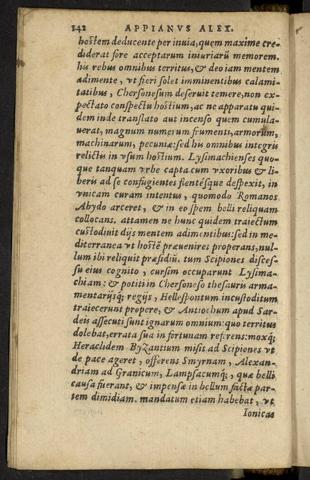 242 APPIANVS ALEX.
hostem deducente per inuia, quem maxime cre-
diderat fore acceptarum iniuriarū memorem.
his rebus omnibus territus, & deo iam mentem
adimente, vt fieri solet imminentibus calami-
tatibus, Chersonesum deseruit temere, non ex-
pectato conspectu hostium, ac ne apparatu qui-
dem inde translato aut incenso quem cumula-
uerat, magnum numerum frumenti, armorum,
machinarum, pecuniæ: sed his omnibus integris
relictis in vsum hostium. Lysimachienses quo-
que tanquam vrbe capta cum vxoribus & li-
beris ad se confugientes flentésque despexit, in
vnicam curam intentus, quomodo Romanos
Abydo arceret, & in eo spem belli reliquam
collocans. attamen ne hunc quidem traiectum
custodiuit dijs mentem adimentibus: sed in me-
diterranea vt hostē præueniret properans, nul-
lum ibi reliquit præsidiū. tum Scipiones disces-
su eius cognito, cursim occuparunt Lysima-
chiam: & potiti in Chersoneso thesauris arma-
mentarijsq; regijs, Hellespontum incustoditum
traiecerunt propere, & Antiochum apud Sar-
deis assecuti sunt ignarum omnium: quo territus
dolebat, errata sua in fortunam referens: moxq;
Heraclidem Byzantium misit ad Scipiones vt
de pace ageret, offerens Smyrnam, Alexan-
driam ad Granicum, Lampsacumq;, quæ belli
causa fuerant, & impensæ in bellum factæ par-
tem dimidiam. mandatum etiam habebat, vt
Ionicas